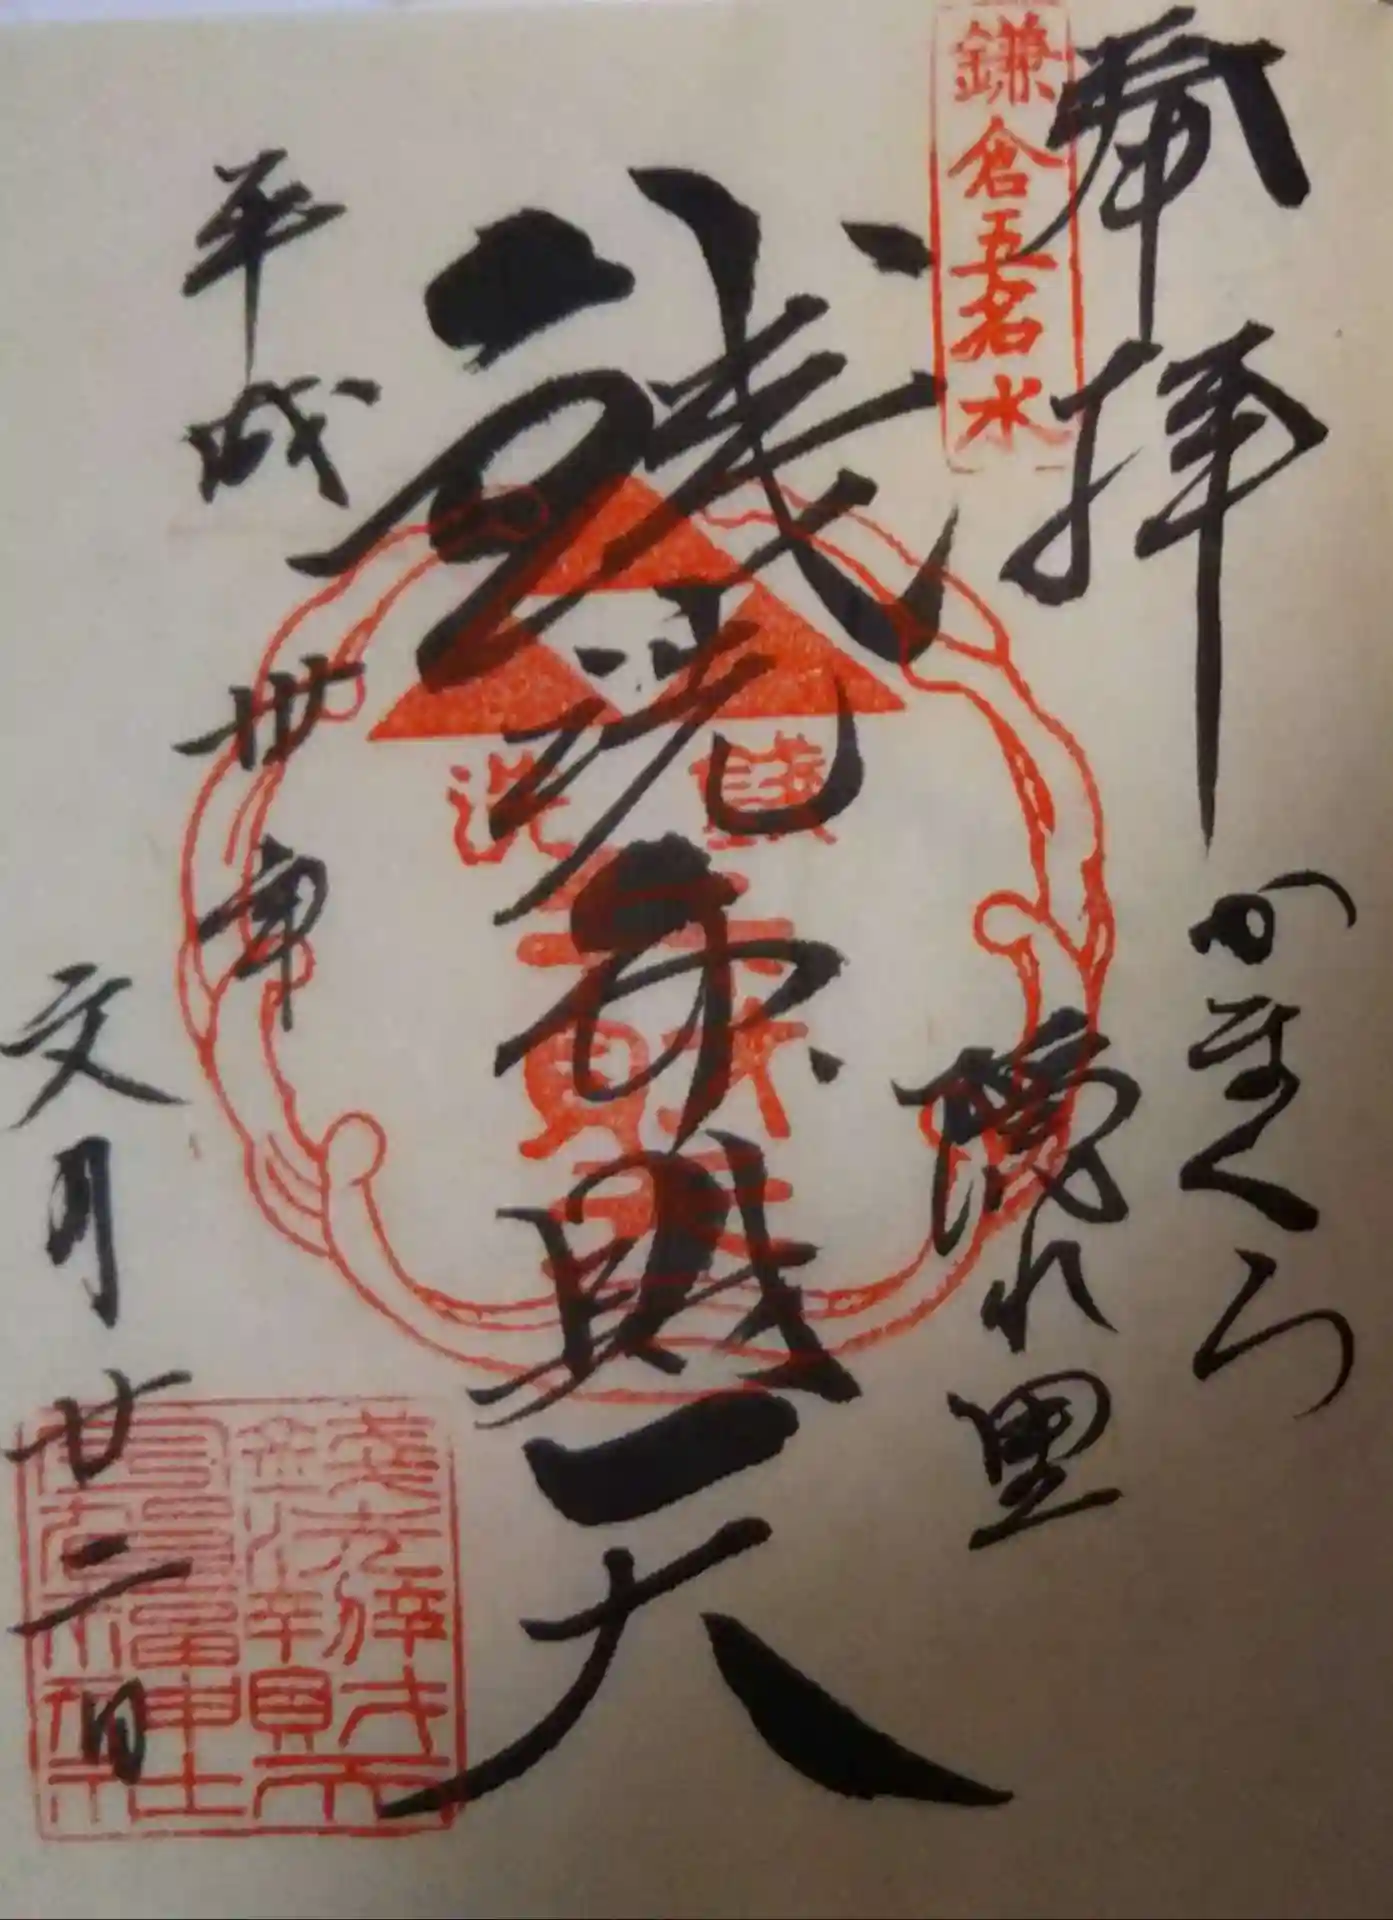 奉拝
かまくら
隠れ里
鎌倉五名水
銭洗弁財天
銭洗
弁財天
平成卅年
文月廿二日
銭洗弁財天
宇賀福神社